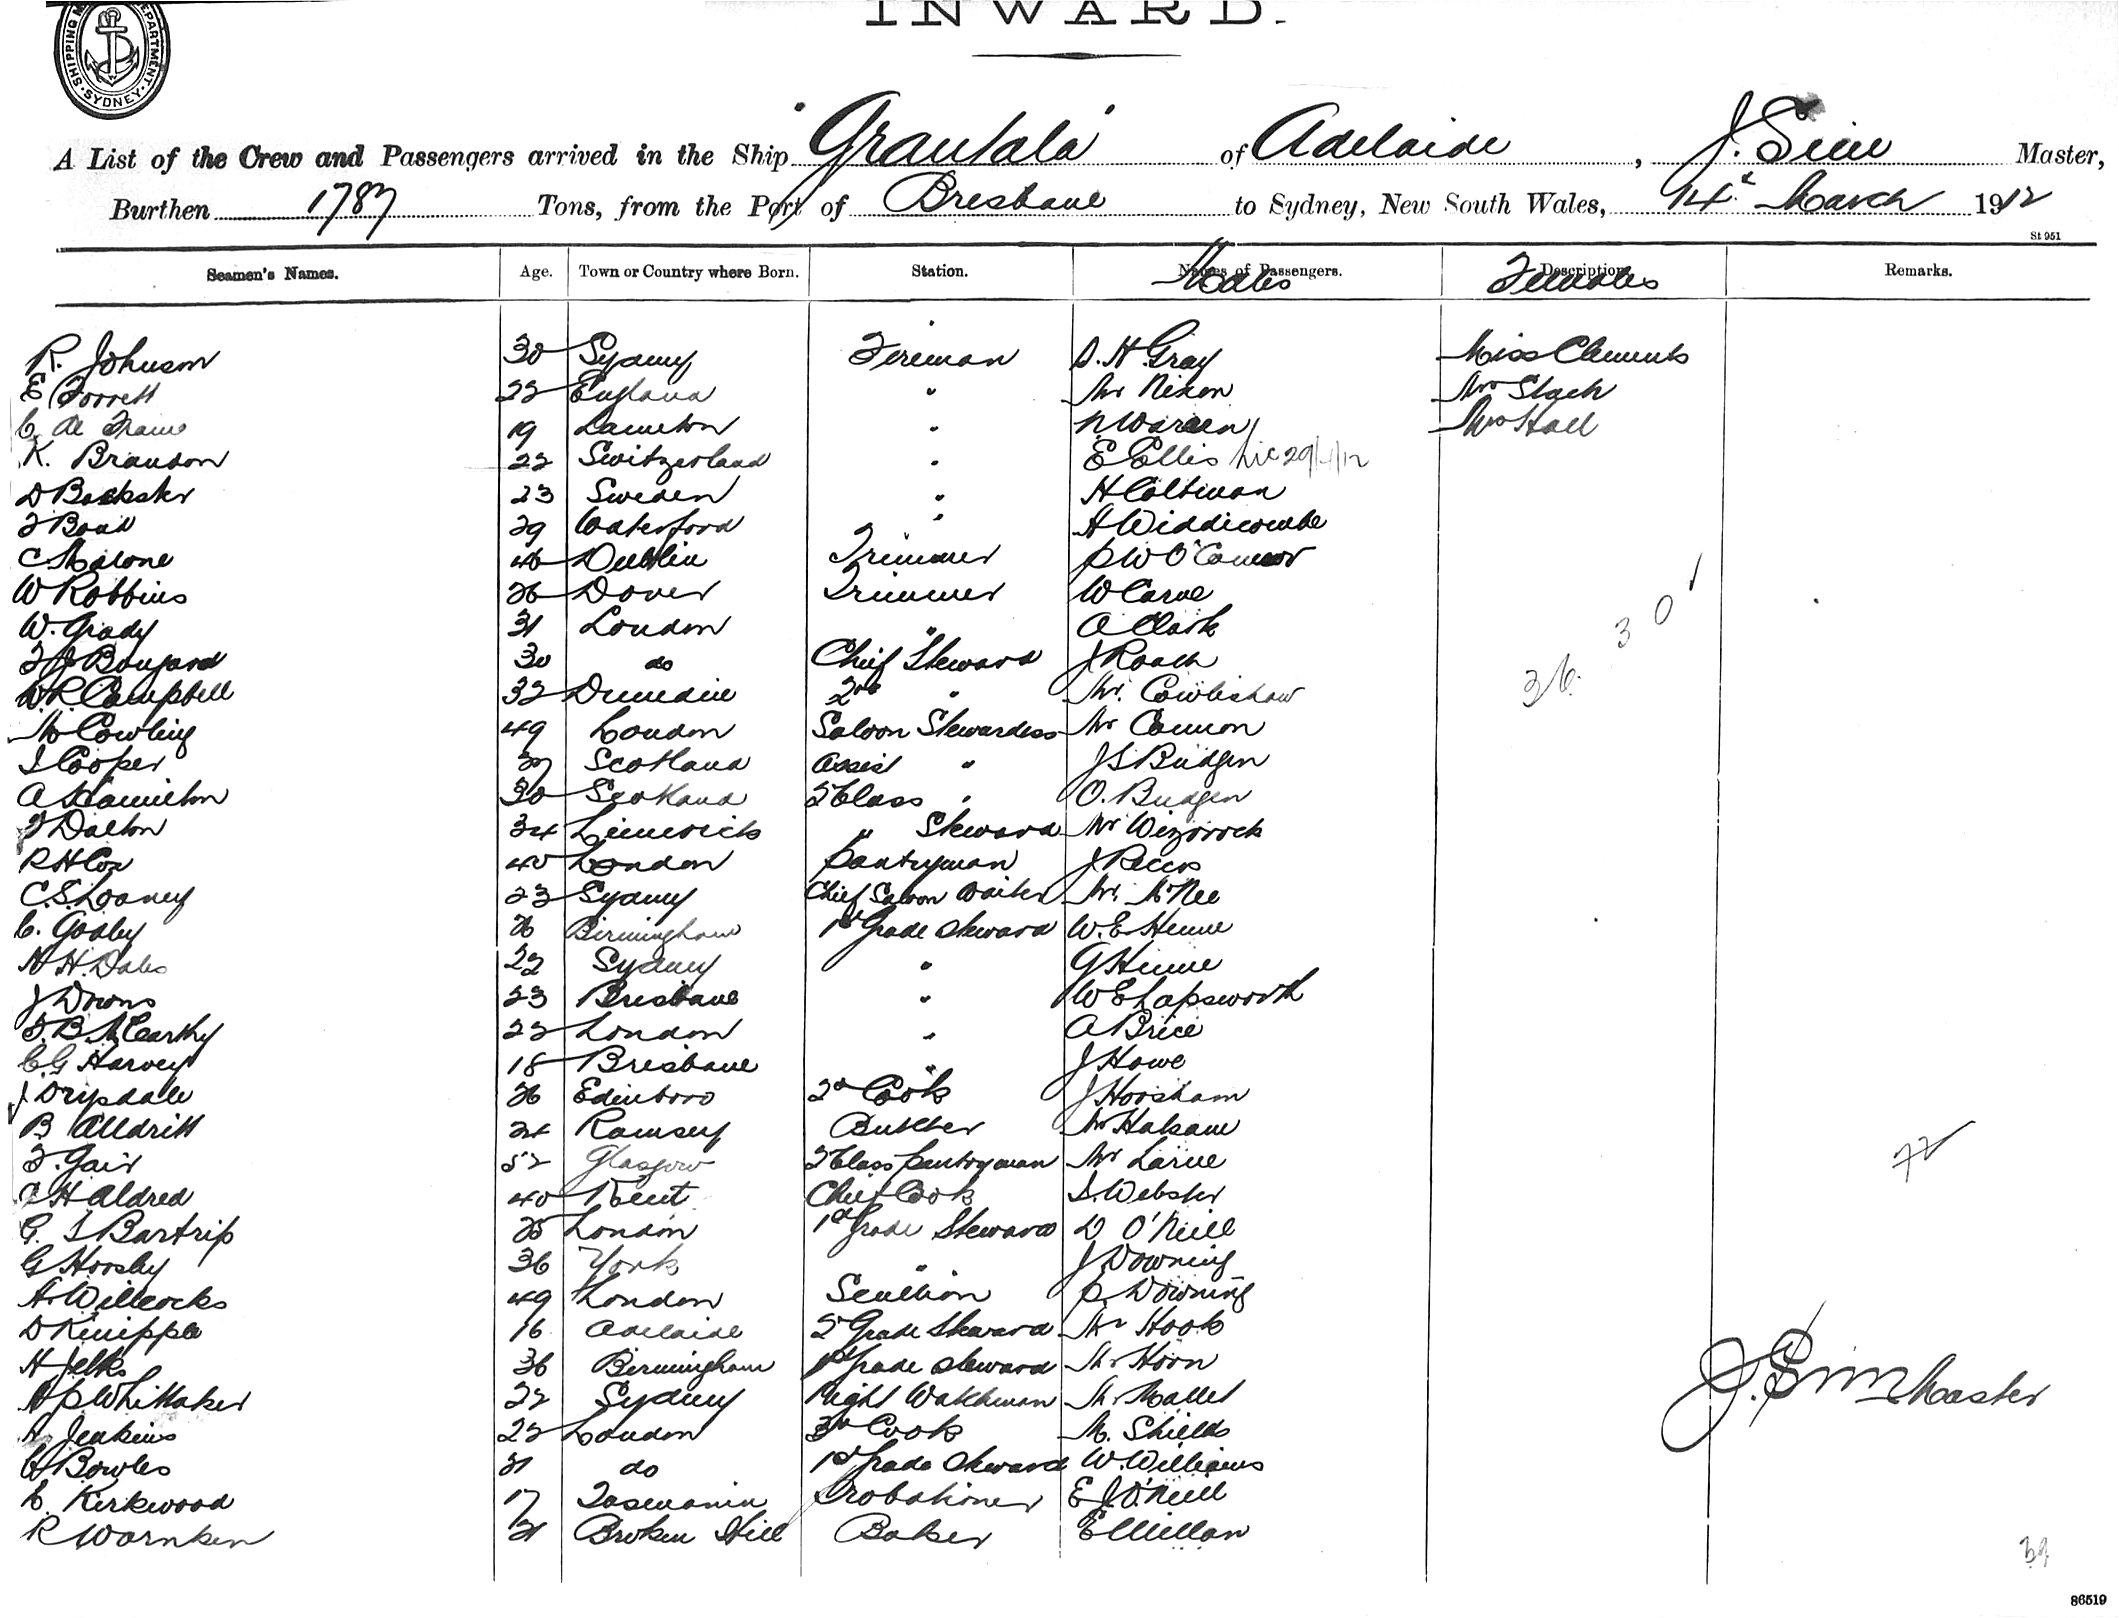 INWARD.
SHIPPING DEPARTMENT SYDNEY
A List of the Crew and Passengers arrived in the Ship "Grantala" of Adelaide, J. Sim Master,
Burthen 1787 Tons, from the Port of Brisbane to Sydney, New South Wales, 14th March 1912
St 951
Seamen's Names. Age. Town or Country where Born. Station. Names of Passengers. Males Description Females Remarks.
R. Johnson 30 Sydney Fireman D. H. Gray Miss Clements
E Forrett 22 England " Mr Nixon Mrs Slack
C. 19 " N Warren Mrs Hall
K. Brandon 22 Switzerland " E Ellis
D Backster 23 Sweden " H Coltman
F Bond 29 Waterford " H Widdicombe
C Malone 40 Dublin Trimmer P W O'Connor
W Robbins 26 Dover Trimmer W Carne
W. Grady 31 London " A Clark
30 do Chief Steward J Roach
W. R. Campbell 32 Dunedin 2nd " Mr. Cowlishaw
M Cowling 49 London Saloon Stewardess Mr Cannon
I Cooper Scotland Assist " J S Budgen
A Hamilton 30 Scotland 2 Class " O. Budgen
F Dalton 34 Limerick " Steward Mr Wizorock
R H Cox 40 London Pantryman J
C. S. Looney 23 Sydney Chief Saloon Waiter Mr. McNee
C. Godby 26 Birmingham 1st Grade Steward W. E Henne
H H. Dales 22 Sydney " G Henne
J Downs 23 Brisbane " W E Lapsworth
F. B. McCarthy 22 London " A Brice
C. G Harvey 18 Brisbane " J Howe
J Drysdale 26 Edinboro 2nd Cook J Horsham
B Alldritt 24 Ramsey Butcher Mr Halsane
F. Gair 52 Glasgow 2 Class Pantryman Mr Larue
H Aldred 40 Kent Chief Cook S. Webster
G. I Bartrip 25 London 1st Grade Steward D O'Neill
G Horsby 36 York " J Downing
A. Willcocks 49 London Scullion P. Downing
D Knipple 16 Adelaide 2nd Grade Steward Mr Hook
H Jelks 36 Birmingham 1st Grade Steward Mr Horn
A P Whittaker 22 Sydney Night Watchman Mr Mallet
A. Jenkins 22 London 3rd Cook M. Shields
Bowles 21 do 1st Grade Steward W. Williams
C. Kirkwood 17 Tasmania Probationer E J O'Neill
R Warnken 21 Broken Hill Baker E Millan
30
36.
72
J. Sim Master
39
86519